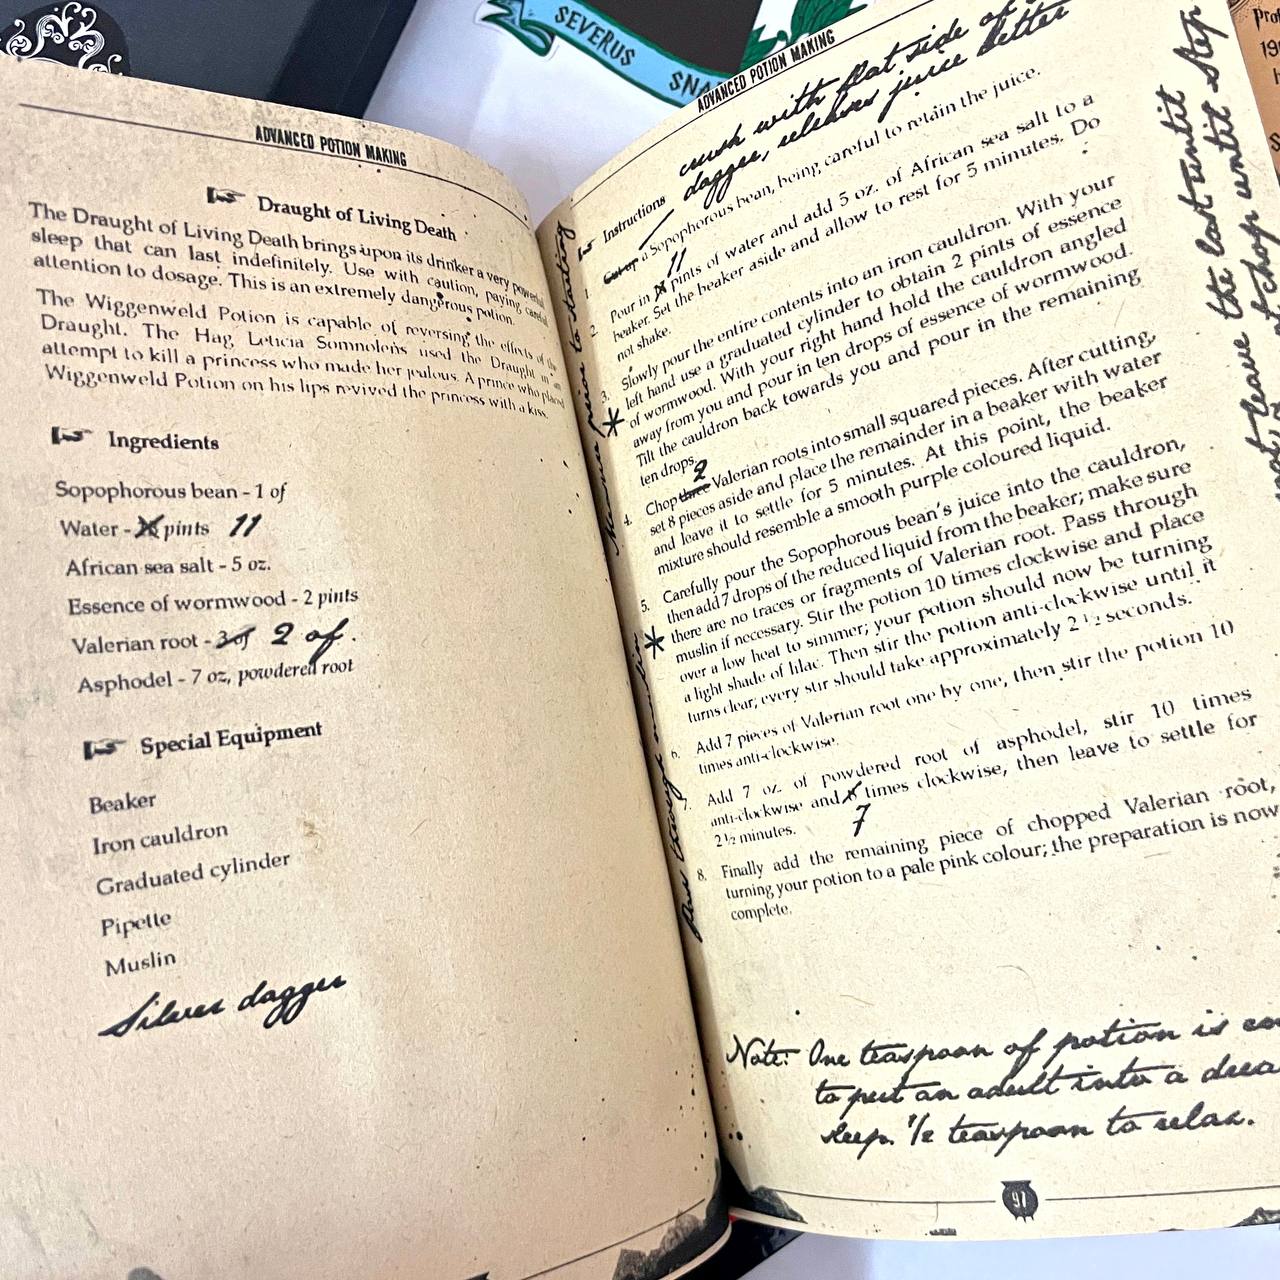 SEVERUS
SNA
ADVANCED POTION MAKING
Draught of Living Death
The Draught of Living Death brings upon its drinker a very powerful
sleep that can last indefinitely. Use with caution, paying careful
attention to dosage. This is an extremely dangerous potion.
The Wiggenweld Potion is capable of reversing the effects of the
Draught. The Hag, Leticia Somnolens used the Draught in an
attempt to kill a princess who made her jealous. A prince who placed
Wiggenweld Potion on his lips revived the princess with a kiss.
Ingredients
Sopophorous bean - 1 of
Water - pints 11
African sea salt - 5 oz.
Essence of wormwood - 2 pints
Valerian root - 3 of 2 of.
Asphodel - 7 oz, powdered root
Special Equipment
Beaker
Iron cauldron
Graduated cylinder
Pipette
Muslin
Silver dagger
ADVANCED POTION MAKING
crush with flat side of
dagger, releases juice better
Instructions
1. Cut up a Sopophorous bean, being careful to retain the juice.
11
2. Pour in pints of water and add 5 oz. of African sea salt to a
beaker. Set the beaker aside and allow to rest for 5 minutes. Do
not shake.
3. Slowly pour the entire contents into an iron cauldron. With your
left hand use a graduated cylinder to obtain 2 pints of essence
of wormwood. With your right hand hold the cauldron angled
away from you and pour in ten drops of essence of wormwood.
Tilt the cauldron back towards you and pour in the remaining
ten drops.
2
4. Chop three Valerian roots into small squared pieces. After cutting,
set 8 pieces aside and place the remainder in a beaker with water
and leave it to settle for 5 minutes. At this point, the beaker
mixture should resemble a smooth purple coloured liquid.
5. Carefully pour the Sopophorous bean's juice into the cauldron,
then add 7 drops of the reduced liquid from the beaker; make sure
there are no traces or fragments of Valerian root. Pass through
muslin if necessary. Stir the potion 10 times clockwise and place
over a low heat to simmer; your potion should now be turning
a light shade of lilac. Then stir the potion anti-clockwise until it
turns clear; every stir should take approximately 2 1/2 seconds.
6. Add 7 pieces of Valerian root one by one, then stir the potion 10
times anti-clockwise.
7. Add 7 oz. of powdered root of asphodel, stir 10 times
anti-clockwise and times clockwise, then leave to settle for
2 1/2 minutes. 7
8. Finally add the remaining piece of chopped Valerian root,
turning your potion to a pale pink colour; the preparation is now
complete.
Note: One teaspoon of potion is
to put an adult into a
sleep. 1/2 teaspoon to relax.
91
prior to starting
Pass through muslin
leave the last until
chop until step